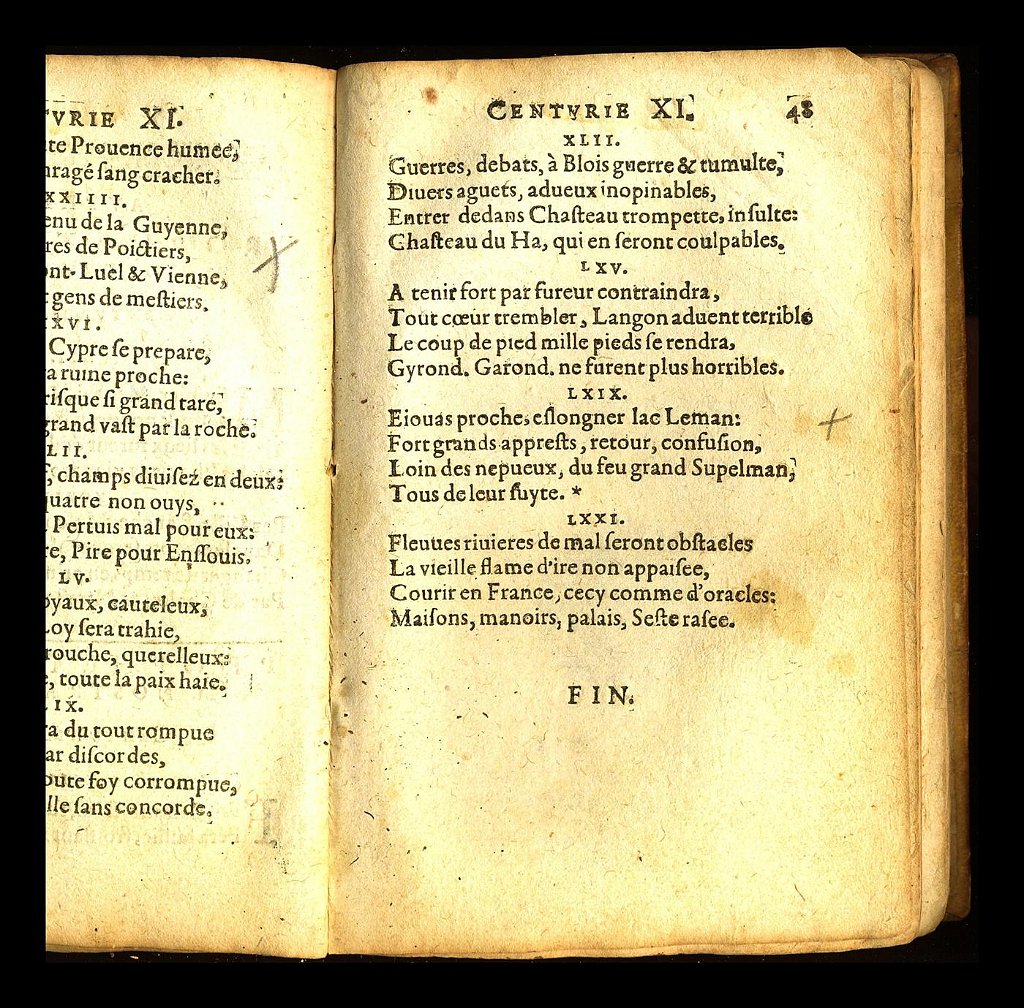 TVRIE XI.
te Prouence humée,
ragé ſang cracher.
XXIIII.
enu de la Guyenne,
res de Poictiers,
nt-Luel & Vienne,
gens de meſtiers.
XVI.
Cypre ſe prepare,
a ruine proche:
riſque ſi grand tare,
grand vaſt par la roche.
LII.
champs diuiſez en deux:
uatre non ouys,
Pertuis mal pour eux:
re, Pire pour Enſſouis.
LV.
oyaux, cauteleux,
Loy ſera trahie,
rouche, querelleux:
, toute la paix haie.
IX.
a du tout rompue
ar diſcordes,
oute foy corrompue,
lle ſans concorde.
CENTVRIE XI. 48
XLII.
Guerres, debats, à Blois guerre & tumulte,
Diuers aguets, adueux inopinables,
Entrer dedans Chaſteau trompette, inſulte:
Chaſteau du Ha, qui en ſeront coulpables.
LXV.
A tenir fort par fureur contraindra,
Tout cœur trembler, Langon aduent terrible
Le coup de pied mille pieds ſe rendra,
Gyrond. Garond. ne furent plus horribles.
LXIX.
Eiouas proche, eſlongner lac Leman:
Fort grands appreſts, retour, confuſion,
Loin des nepueux, du feu grand Supelman,
Tous de leur ſuyte. *
LXXI.
Fleuues riuieres de mal ſeront obſtacles
La vieille flame d'ire non appaiſee,
Courir en France, cecy comme d'oracles:
Maiſons, manoirs, palais, Seſte raſee.
FIN.